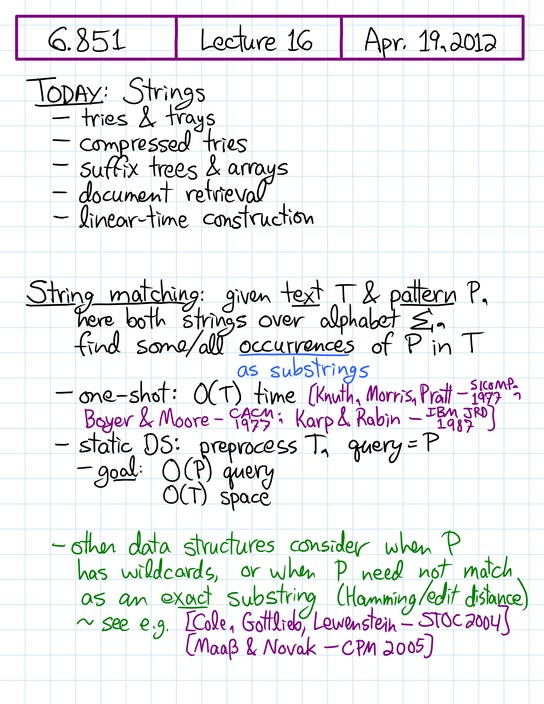 6.851 Lecture 16 Apr. 19, 2012
TODAY: Strings
– tries & trays
– compressed tries
– suffix trees & arrays
– document retrieval
– linear-time construction
String matching: given text T & pattern P,
here both strings over alphabet Σ,
find some/all occurrences of P in T
as substrings
– one-shot: O(T) time [Knuth, Morris, Pratt – SICOMP 1977;
Boyer & Moore – CACM 1977; Karp & Rabin – IBM JRD 1987]
– static DS: preprocess T, query = P
– goal: O(P) query
O(T) space
– other data structures consider when P
has wildcards, or when P need not match
as an exact substring (Hamming/edit distance)
~ see e.g. [Cole, Gottlieb, Lewenstein – STOC 2004]
[Maaß & Novak – CPM 2005]